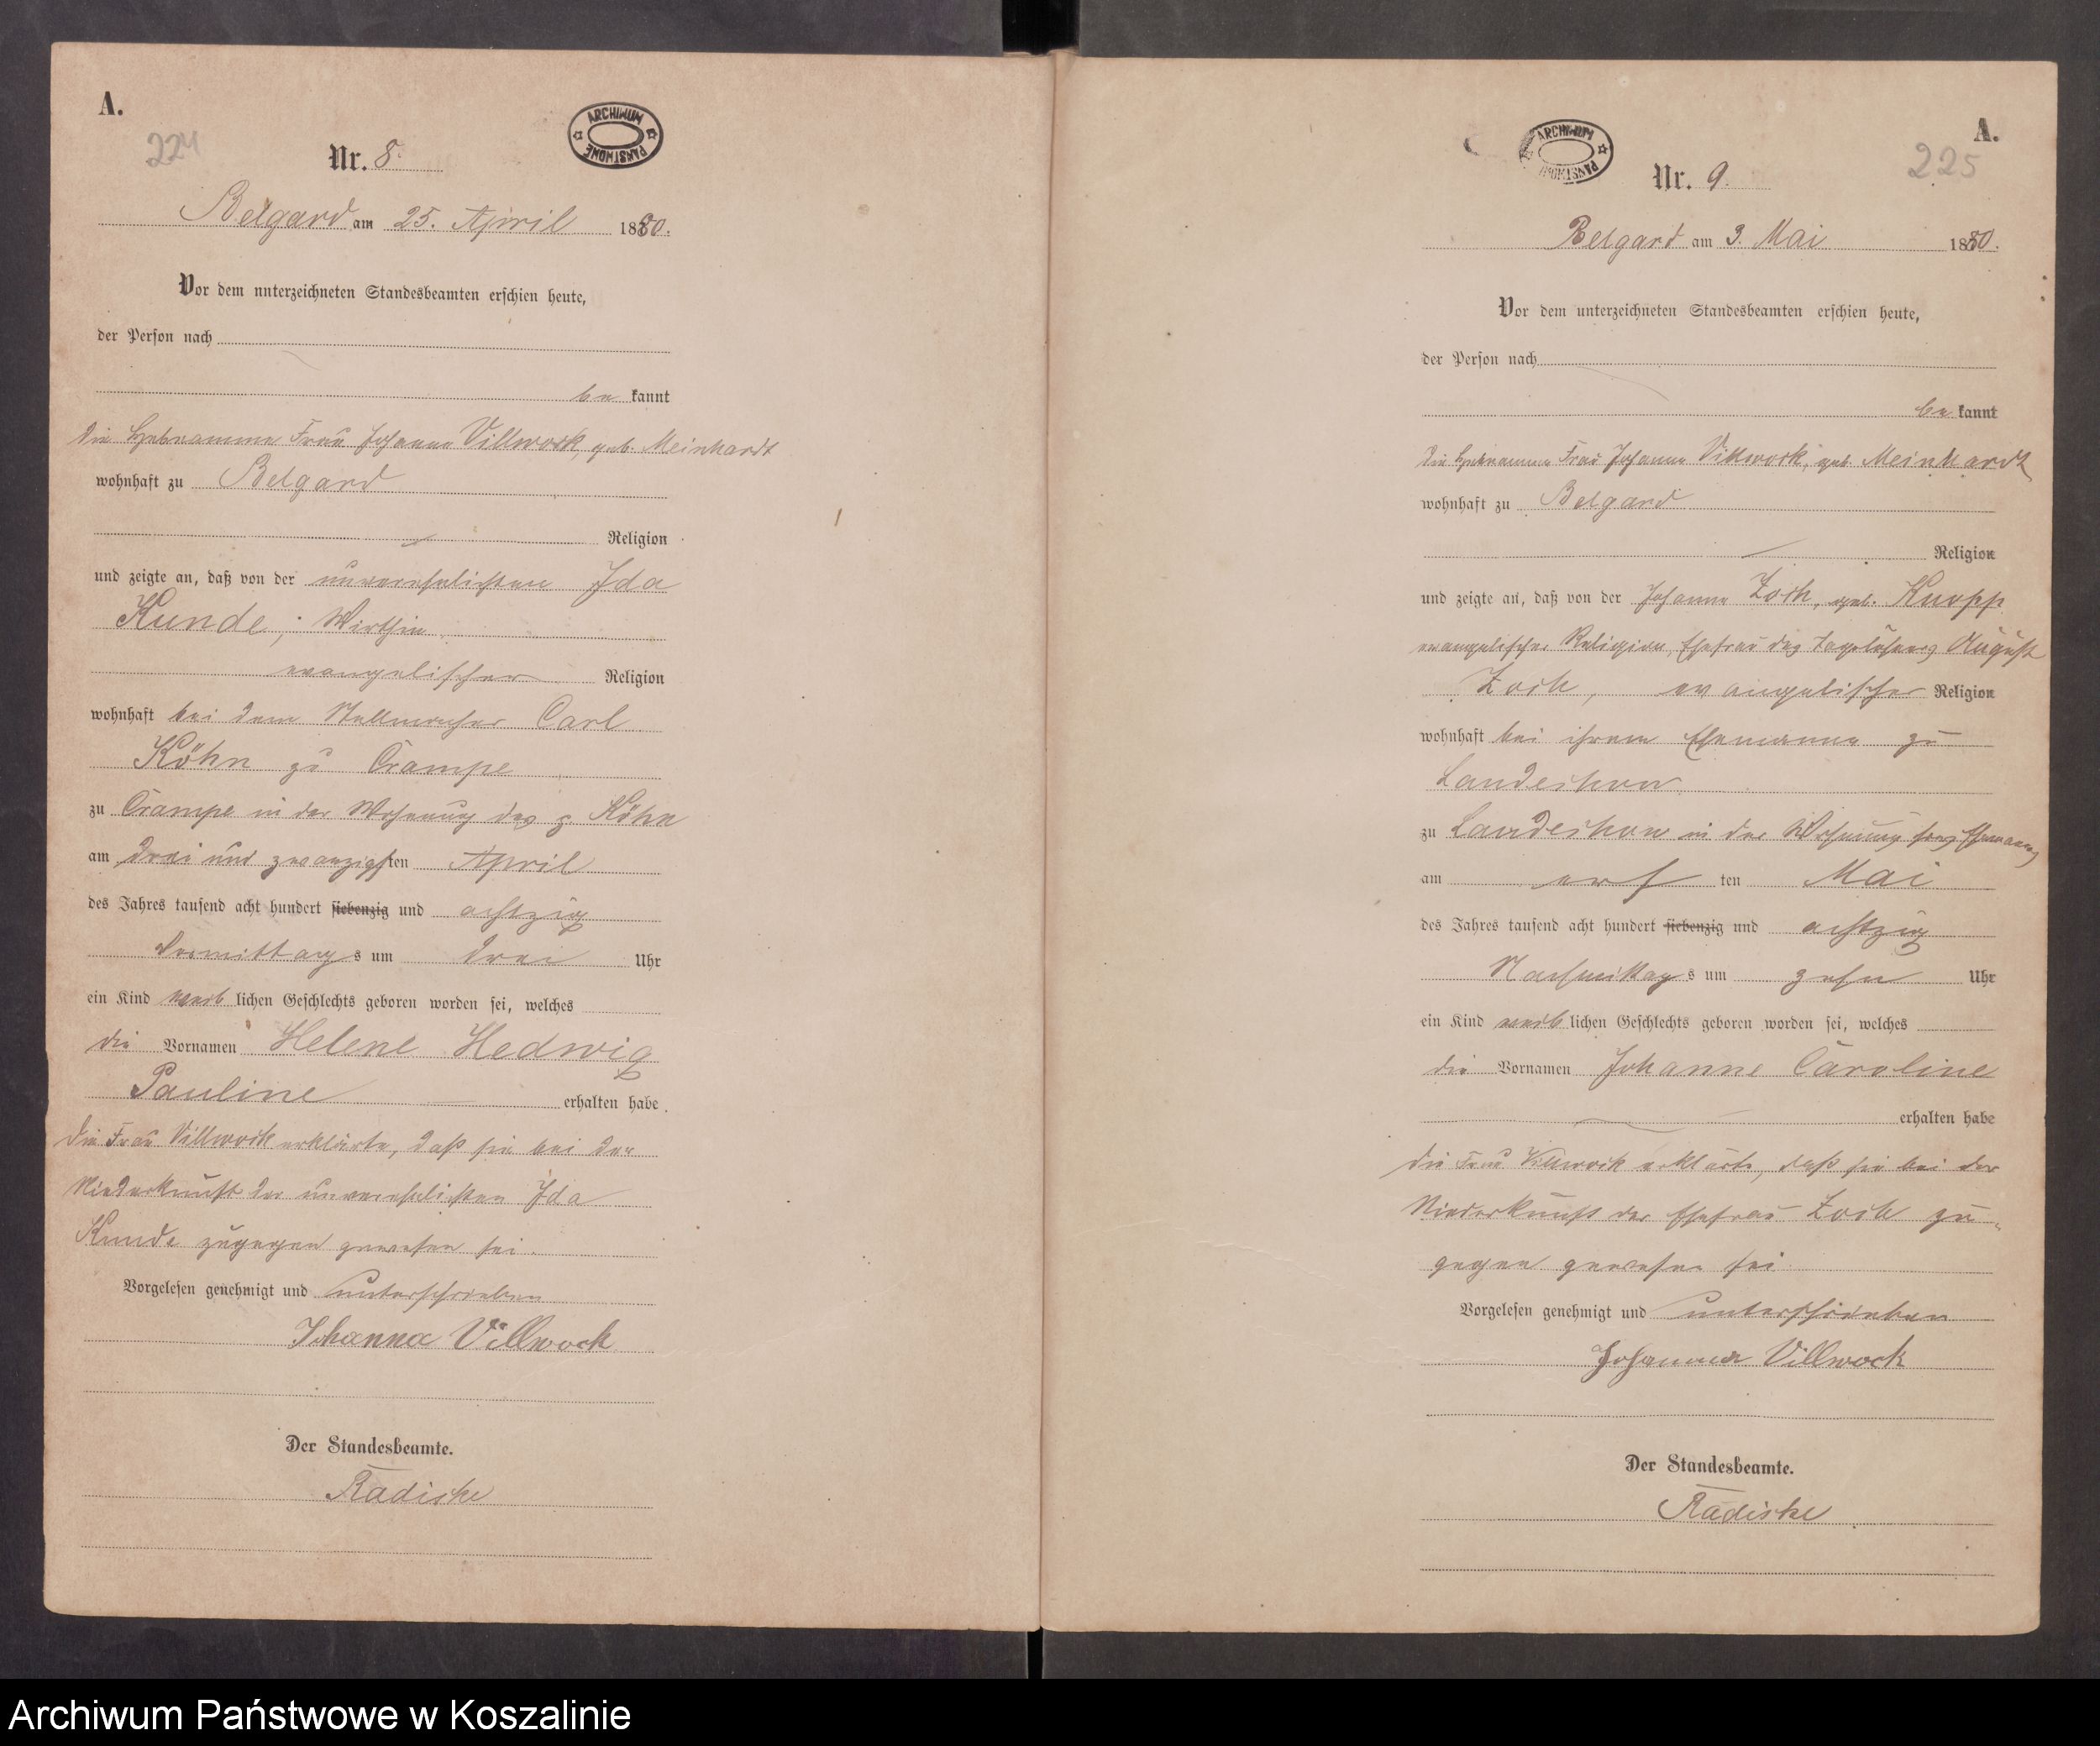 A.
224
Nr. 8.
ARCHIWUM PAŃSTWOWE
Belgard am 25. April 1880.
Vor dem unterzeichneten Standesbeamten erschien heute,
der Person nach
be kannt
die Hebeamme Frau Johanna Villwock, geb. Meinhardt
wohnhaft zu Belgard
Religion
und zeigte an, daß von der unverehelichten Ida
Kunde, Wirthin
evangelischer Religion
wohnhaft bei dem Stellmacher Carl
Köhn zu Crampe
zu Crampe in der Wohnung des p. Köhn
am drei und zwanzigsten April
des Jahres tausend acht hundert siebenzig und achtzig
Vormittags um drei Uhr
ein Kind weiblichen Geschlechts geboren worden sei, welches
die Vornamen Helene Hedwig
Pauline erhalten habe.
die Frau Villwock erklärte, daß sie bei der
Niederkunft der unverehelichten Ida
Kunde zugegen gewesen sei.
Vorgelesen genehmigt und unterschrieben
Johanna Villwock
Der Standesbeamte.
Radiske
A.
225
Nr. 9.
ARCHIWUM PAŃSTWOWE
Belgard am 3. Mai 1880.
Vor dem unterzeichneten Standesbeamten erschien heute,
der Person nach
be kannt
die Hebeamme Frau Johanna Villwock, geb. Meinhardt
wohnhaft zu Belgard
Religion
und zeigte an, daß von der Johanna Zoch, geb. Knopp
evangelischer Religion, Ehefrau des Tagelöhners August
Zoch, evangelischer Religion
wohnhaft bei ihrem Ehemanne zu
Landechow
zu Landechow in der Wohnung ihres Ehemannes
am ersten Mai
des Jahres tausend acht hundert siebenzig und achtzig
Nachmittags um zehn Uhr
ein Kind weiblichen Geschlechts geboren worden sei, welches
die Vornamen Johanne Caroline
erhalten habe
die Frau Villwock erklärte, daß sie bei der
Niederkunft der Ehefrau Zoch zu-
gegen gewesen sei
Vorgelesen genehmigt und unterschrieben
Johanna Villwock
Der Standesbeamte.
Radiske
Archiwum Państwowe w Koszalinie